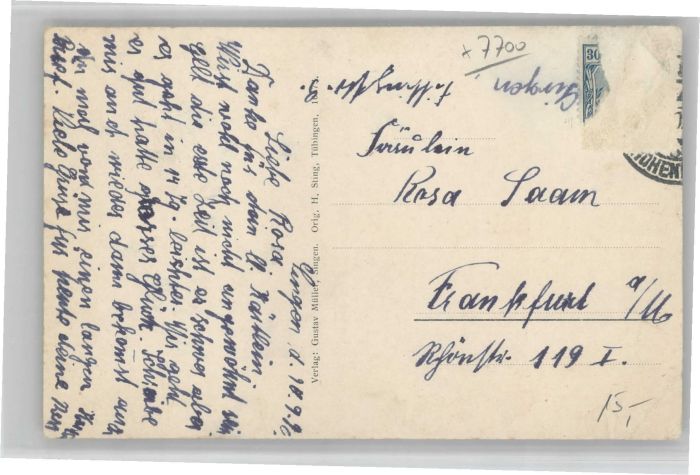 Singen d. 10.9.
Liebe Rosa.
Danke für dein ll Kärtlein
Wirst wohl noch nicht eingewöhnt sein
gelt die erste Zeit ist es schwer aber
es geht in 14 Tg. leichter. Wie geht
es gut hatte grosses Glück. Schreibe
mir auch wieder dann bekomst auch
mal von mir einen langen
Brief. Viele Grüße für heute deine
Verlag: Gustav Müller, Singen. Orig. H. Sting, Tübingen,
x 7700
30
Singen
HOHENT
Fräulein
Rosa Saam
Frankfurt a/M
Schönstr. 119 I.
15,-